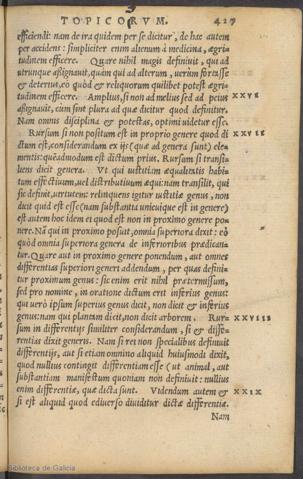 TOPICORVM. 427
efficiendi: nam de ira quidem per se dicitur, de hac autem
per accidens: simpliciter enim alienum à medicina, ægri-
tudinem efficere. Quare nihil magis definiuit, qui ad
utrunque aßignauit, quàm qui ad alterum, uerùm fortasse
& deterius, eo quòd & reliquorum quilibet potest ægri-
tudinem efficere. Amplius, si non ad melius sed ad peius XXVI
aßignauit, cùm sint plura ad quæ dicitur quod definitur.
Nam omnis disciplina & potestas, optimi uidetur esse.
Rursum si non positum est in proprio genere quod di XXVII
ctum est, considerandum ex ijs (quæ ad genera sunt) ele-
mentis: quèadmodum est dictum prius. Rursum si transi-
liens dicit genera. Vt qui iustitiam æqualitatis habi-
tum effectiuum, uel distributiuum æqui: nam transilit, qui
sic definit, uirtutem: relinquens igitur iustitiæ genus, non
dicit quid est esse (nam substantia unicuique est in genere)
est autem hoc idem ei quod est non in proximo genere po
nere. Nã qui in proximo posuit, omnia superiora dixit: eò
quòd omnia superiora genera de inferioribus prædican-
tur. Quare aut in proximo genere ponendum, aut omnes
differentias superiori generi addendum, per quas defini-
tur proximum genus: sic enim erit nihil prætermissum,
sed pro nomine, in oratione dictum erit inferius genus:
qui uerò ipsum superius genus dicit, non dicit & inferius
genus: nam qui plantam dicit, non dicit arborem. Rur- XXVIII
sum in differentijs similiter considerandum, si & diffe-
rentias dixit generis. Nam si rei non specialibus definiuit
differentijs, aut si etiam omnino aliquid huiusmodi dixit,
quod nullius contingit differentiam esse (ut animal, aut
substantiam) manifestum quoniam non definiuit: nullius
enim differentiæ, quæ dicta sunt. Videndum autem & XXIX
si est aliquid quod ediuerso diuiditur dictæ differentiæ.
Nam
Biblioteca de Galicia